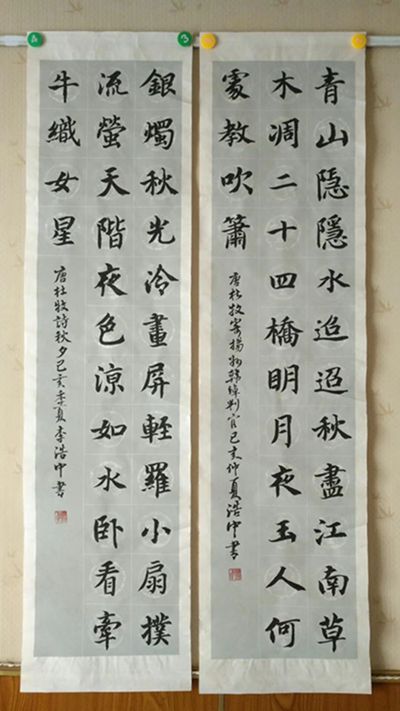 青山隐隱水迢迢秋盡江南草
木凋二十四橋明月夜玉人何
處教吹簫
唐杜牧寄揚州韓綽判官己亥仲夏浩中書
銀燭秋光冷畫屏輕羅小扇撲
流螢天階夜色凉如水卧看牽
牛織女星
唐杜牧詩秋夕己亥季夏李浩中書